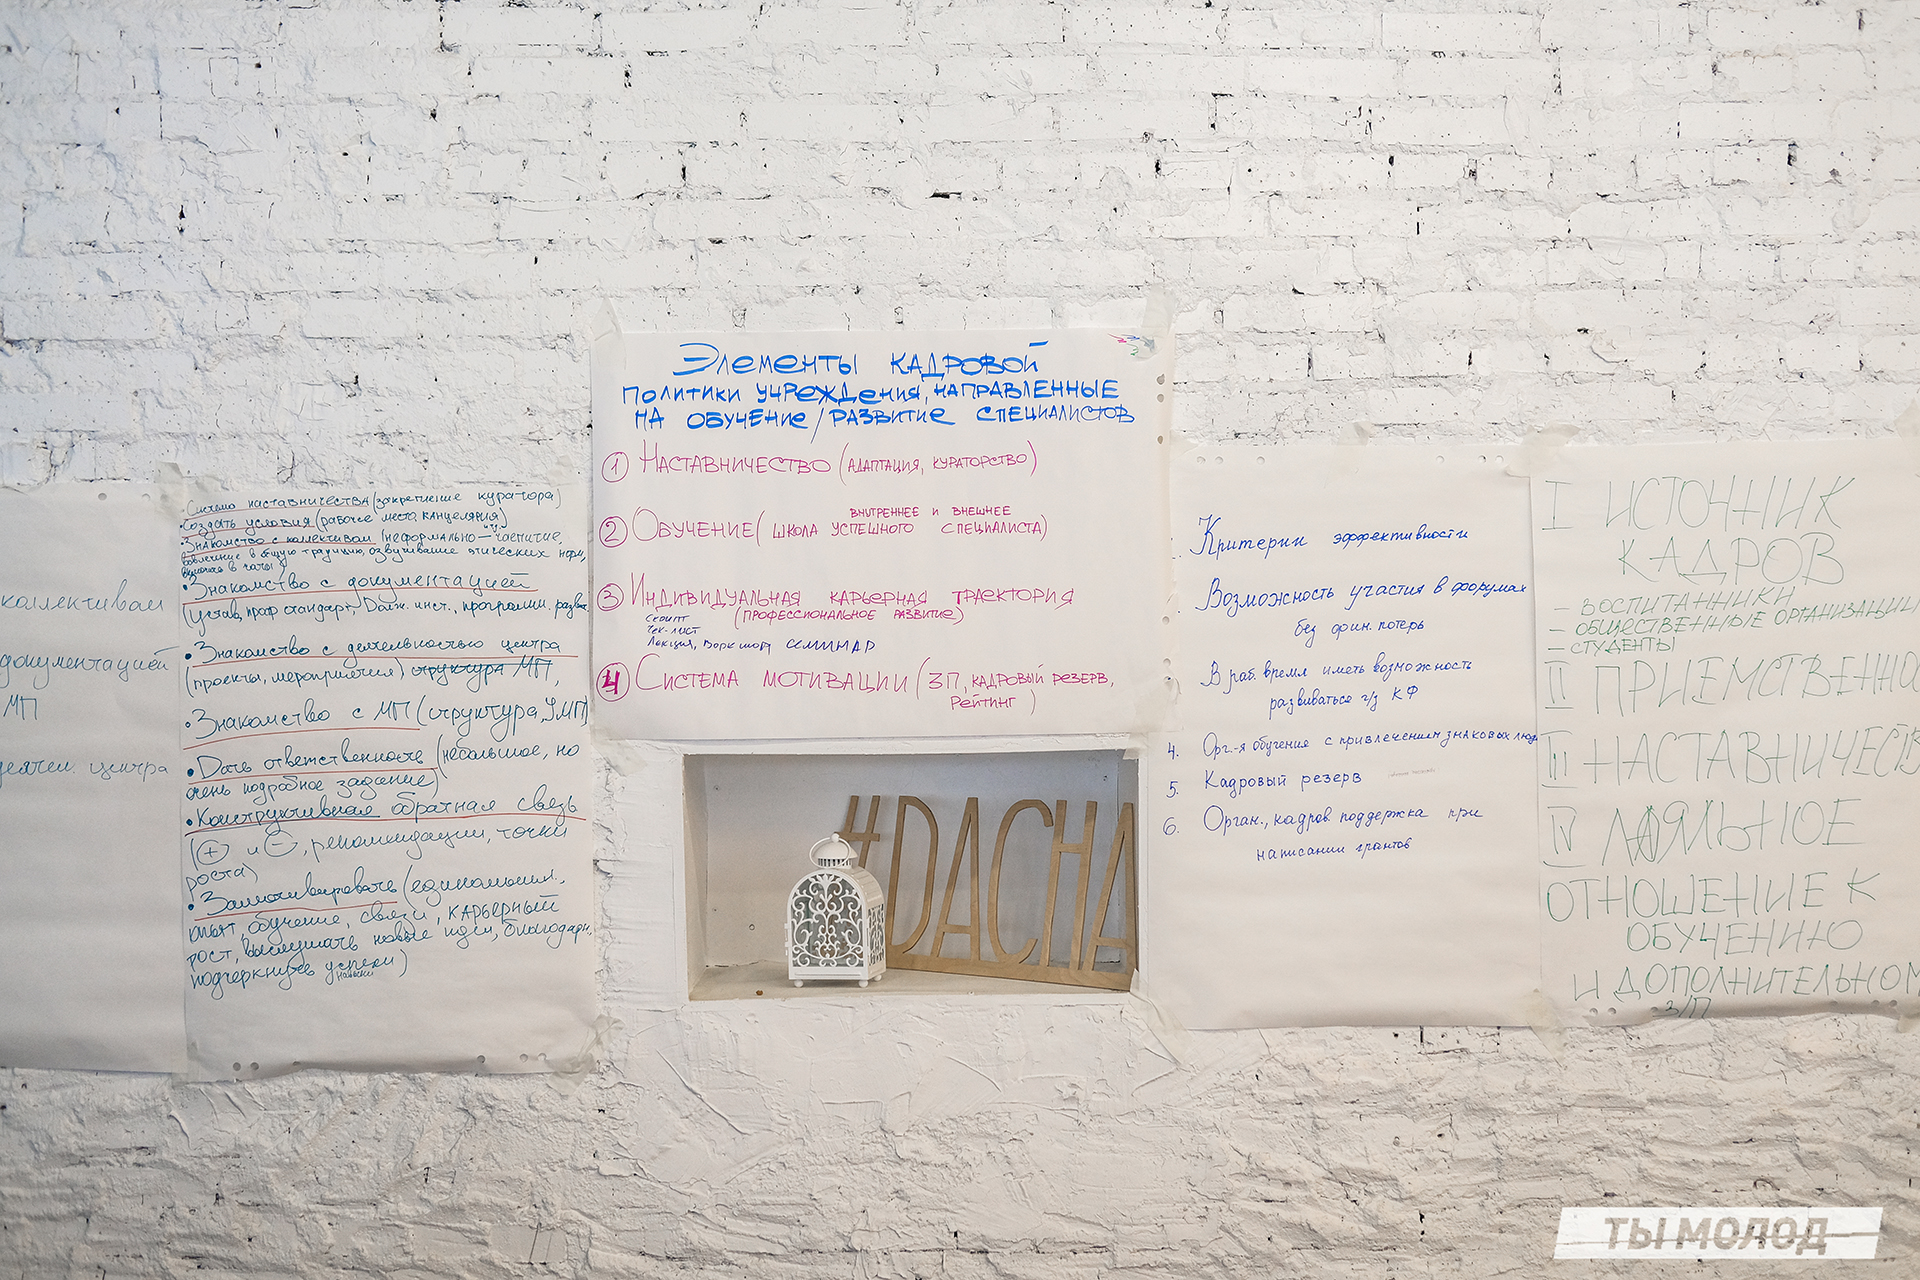 коллективом
документацией
МП
центра
• Система наставничества (закрепление куратора)
• Создать условия (рабочее место, канцелярия)
• Знакомство с коллективом (неформально – чаепитие,
вовлечение в общую традицию, озвучивание этических норм,
включить в чаты)
• Знакомство с документацией
(устав, проф стандарт, Долж. инст., программы развит.
• Знакомство с деятельностью центра
(проекты, мероприятия) структура МП,
• Знакомство с МП (структура, УМП)
• Дать ответственность (небольшое, но
очень подробное задание)
• Конструктивная обратная связь
(+ и –, рекомендации, точки
роста)
• Замотивировать (единомышл.,
опыт, обучение, связи, карьерный
рост, выслушать новые идеи, благодарн.,
подчеркнуть успехи)
навыки
Элементы кадровой
политики учреждения, направленные
на обучение / развитие специалистов
1 Наставничество (адаптация, кураторство)
внутреннее и внешнее
2 Обучение (школа успешного специалиста)
3 Индивидуальная карьерная траектория
(профессиональное развитие)
Скрипт
Чек-лист
Лекция, Воркшоп, семинар
4 Система мотивации (ЗП, кадровый резерв,
Рейтинг)
#DACHA
Критерии эффективности
Возможность участия в форумах
без фин. потерь
В раб. время иметь возможность
развиваться г/з КФ
4. Орг-я обучение с привлечением знаковых люд
5. Кадровый резерв
6. Орган., кадров. поддержка при
написании грантов
I ИСТОЧНИК
КАДРОВ
– ВОСПИТАННИКИ
– ОБЩЕСТВЕННЫЕ ОРГАНИЗАЦИИ
– СТУДЕНТЫ
II ПРИЕМСТВЕННО
III НАСТАВНИЧЕСТВ
IV ЛОЯЛЬНОЕ
ОТНОШЕНИЕ К
ОБУЧЕНИЮ
И ДОПОЛНИТЕЛЬНОМ
З/П
ТЫ МОЛОД